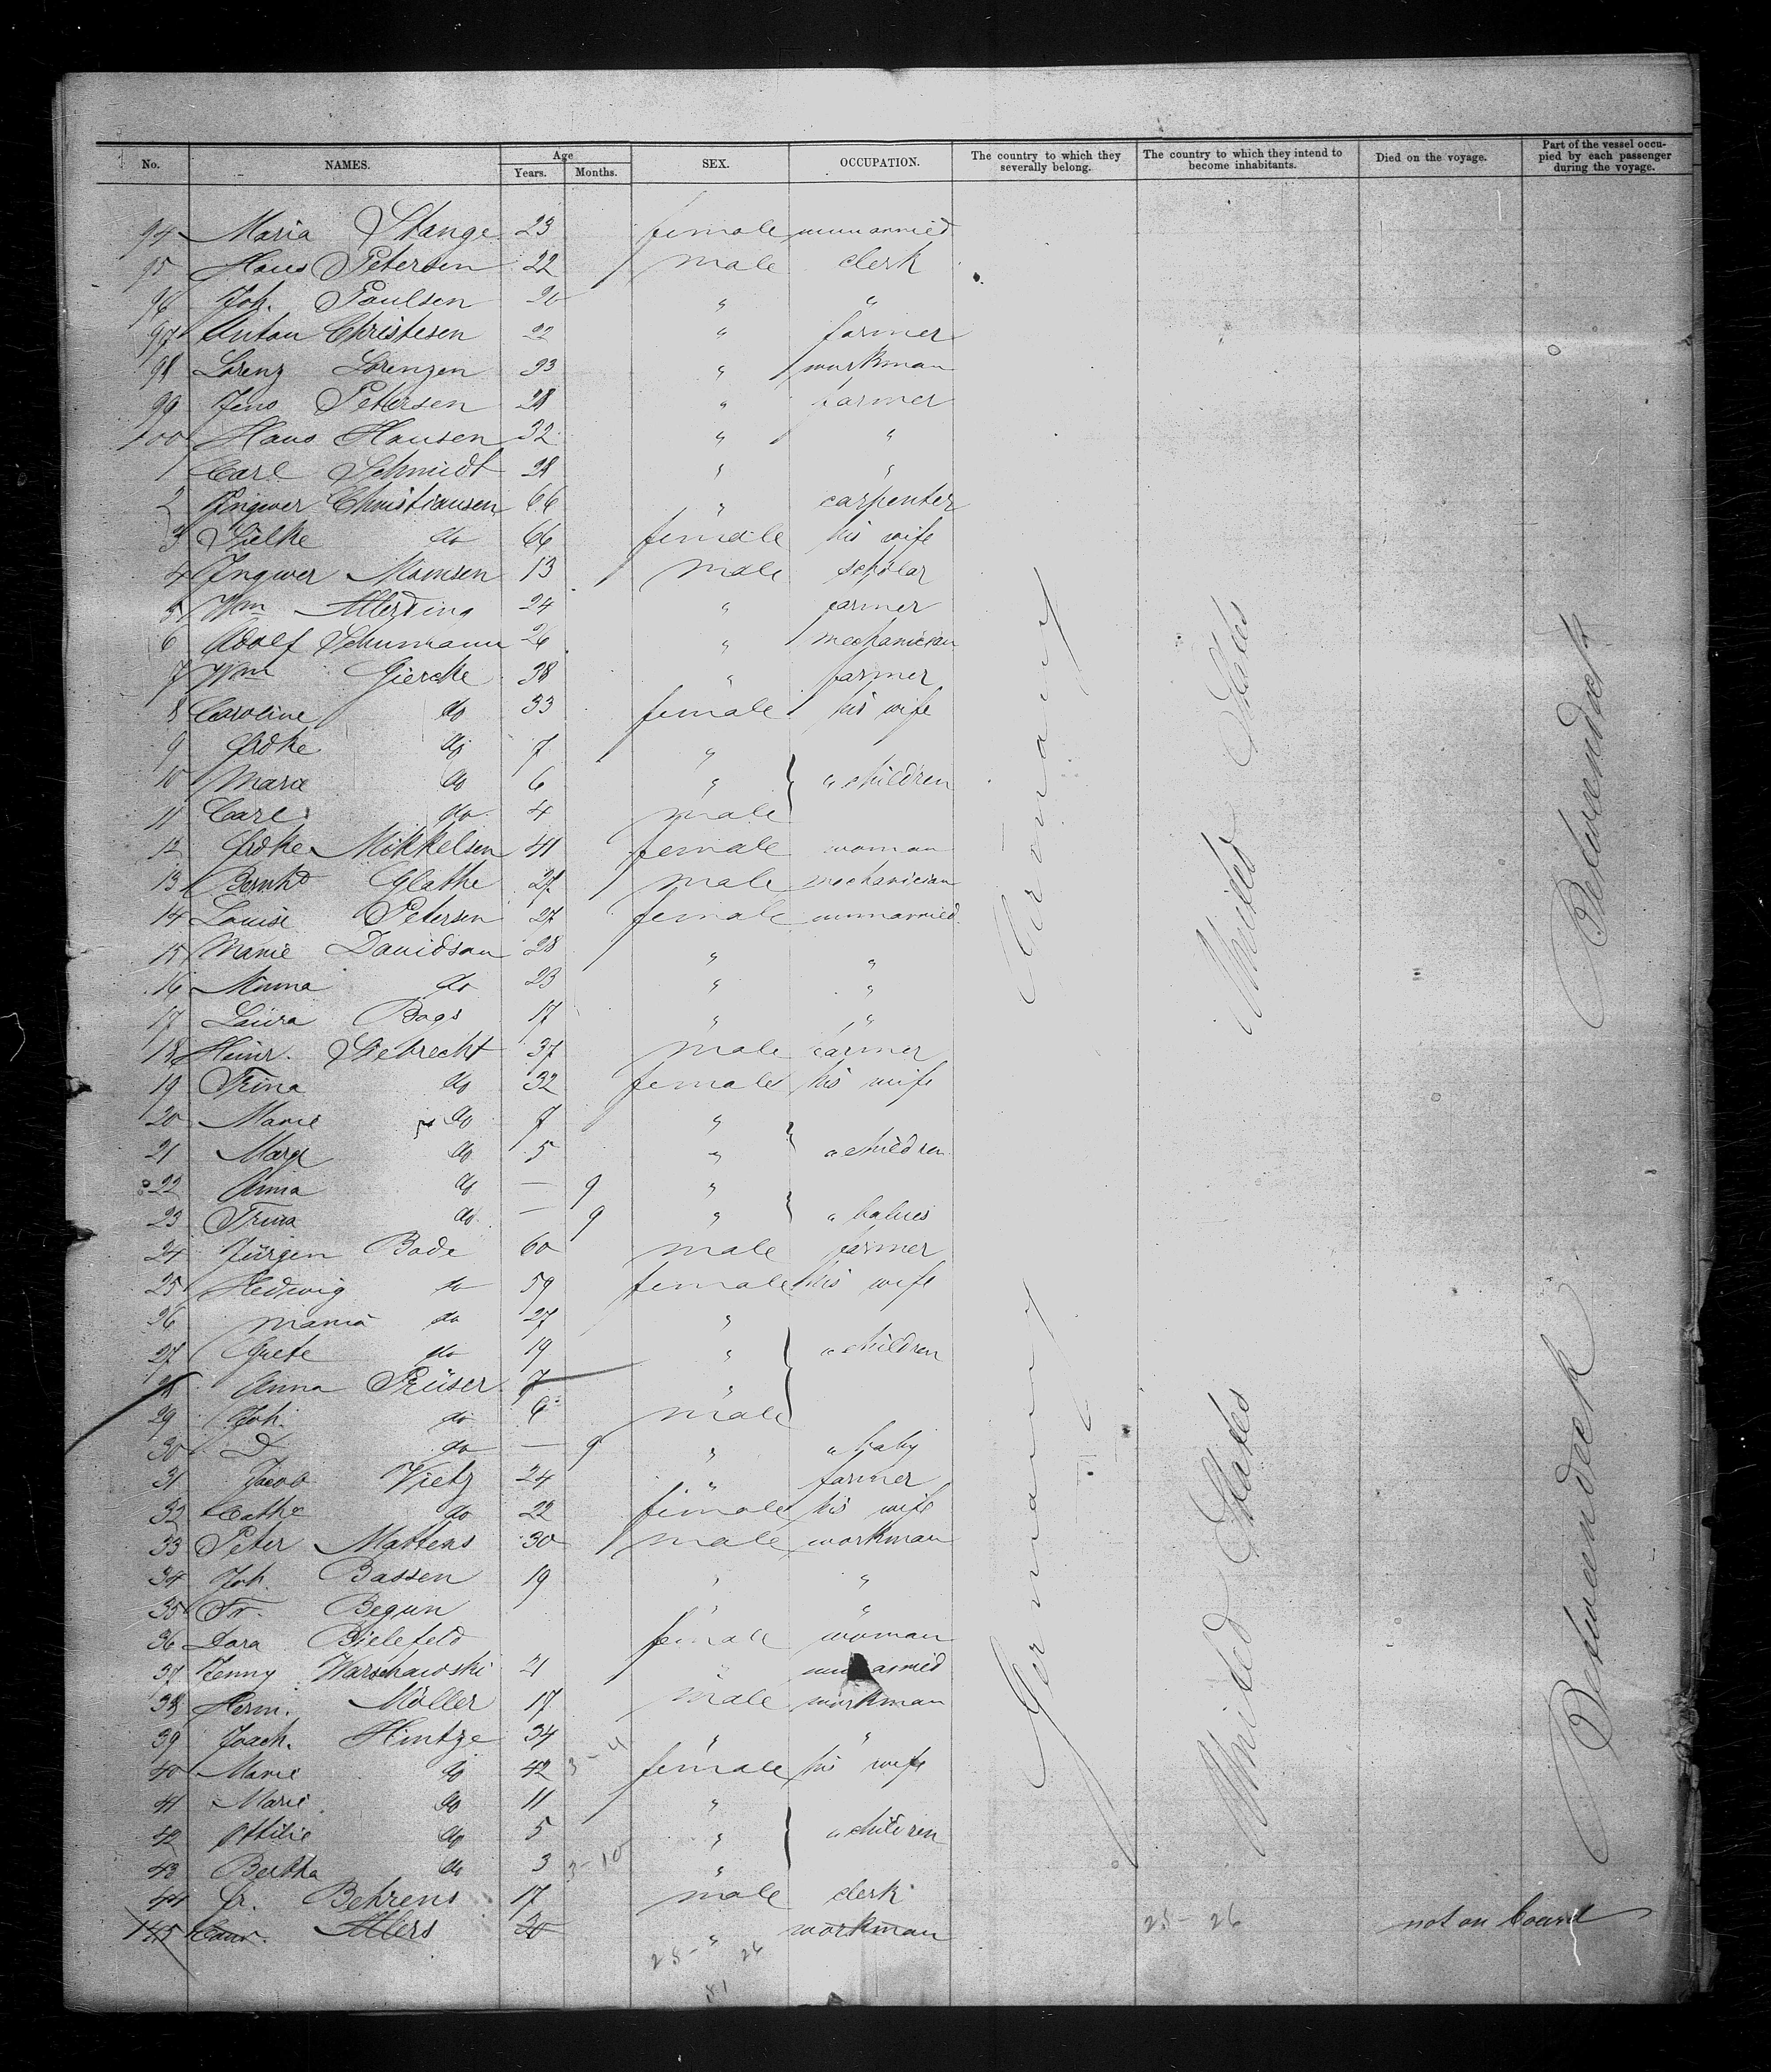 No. NAMES. Age Years. Months. SEX. OCCUPATION. The country to which they severally belong. The country to which they intend to become inhabitants. Died on the voyage. Part of the vessel occupied by each passenger during the voyage.
94 Maria Stange 23 female unmarried
95 Hans Petersen 22 male clerk
96 Joh. Paulsen 20 " "
97 Anton Christesen 22 " farmer
98 Lorenz Lorenzen 23 " workman
99 Jens Petersen 28 " farmer
100 Hans Hansen 32 " "
1 Carl Schmidt 28 " "
2 Christiansen 66 " carpenter
3 do 66 female his wife
4 Ingwer Momsen 13 male scholar
5 Wm 24 " farmer
6 Adolf Schumann 26 " mechanician
7 Wm Giercke 38 " farmer
8 Caroline do 33 female his wife
9 do 7 "
10 Maria do 6 " " children
11 Carl do 4 male
12 Mikkelsen 41 female woman
13 Bernhd Glathe 27 male mechanician
14 Louise Petersen 27 female unmarried
15 Marie Davidson 28 " "
16 Minna do 23 " "
17 Laura Bogs 17 " "
18 Heinr. Siebrecht 37 male farmer
19 Trina do 32 female his wife
20 Marie do 7 "
21 Margr do 5 " " children
22 Anna do — 9 "
23 Trina do — 9 " " babies
24 Jürgen Bode 60 male farmer
25 Hedwig do 59 female his wife
26 Maria do 27 "
27 Grete do 19 " " children
28 Anna Prüser 7 "
29 Joh. do 6 male
30 D do — 9 " " baby
31 Jacob Vietz 24 " farmer
32 Cathe do 22 female his wife
33 Peter Mattens 30 male workman
34 Joh. Bassen 19 " "
35 Fr. Begun " "
36 Dora Bielefeld female woman
37 Jenny Warschawski 21 " unmarried
38 Herm. Möller 17 male workman
39 Joach. Hintze 34 " "
40 Marie do 42 female his wife
41 Marie do 11 "
42 Ottilie do 5 " " children
43 Bertha do 3 3-10 "
44 Fr. Behrens 17 male clerk
145 Ahlers 20 " workman 25 - 26 not on board
25 - 26
51
Germany
United States
Betweendeck
Germany
United States
Betweendeck